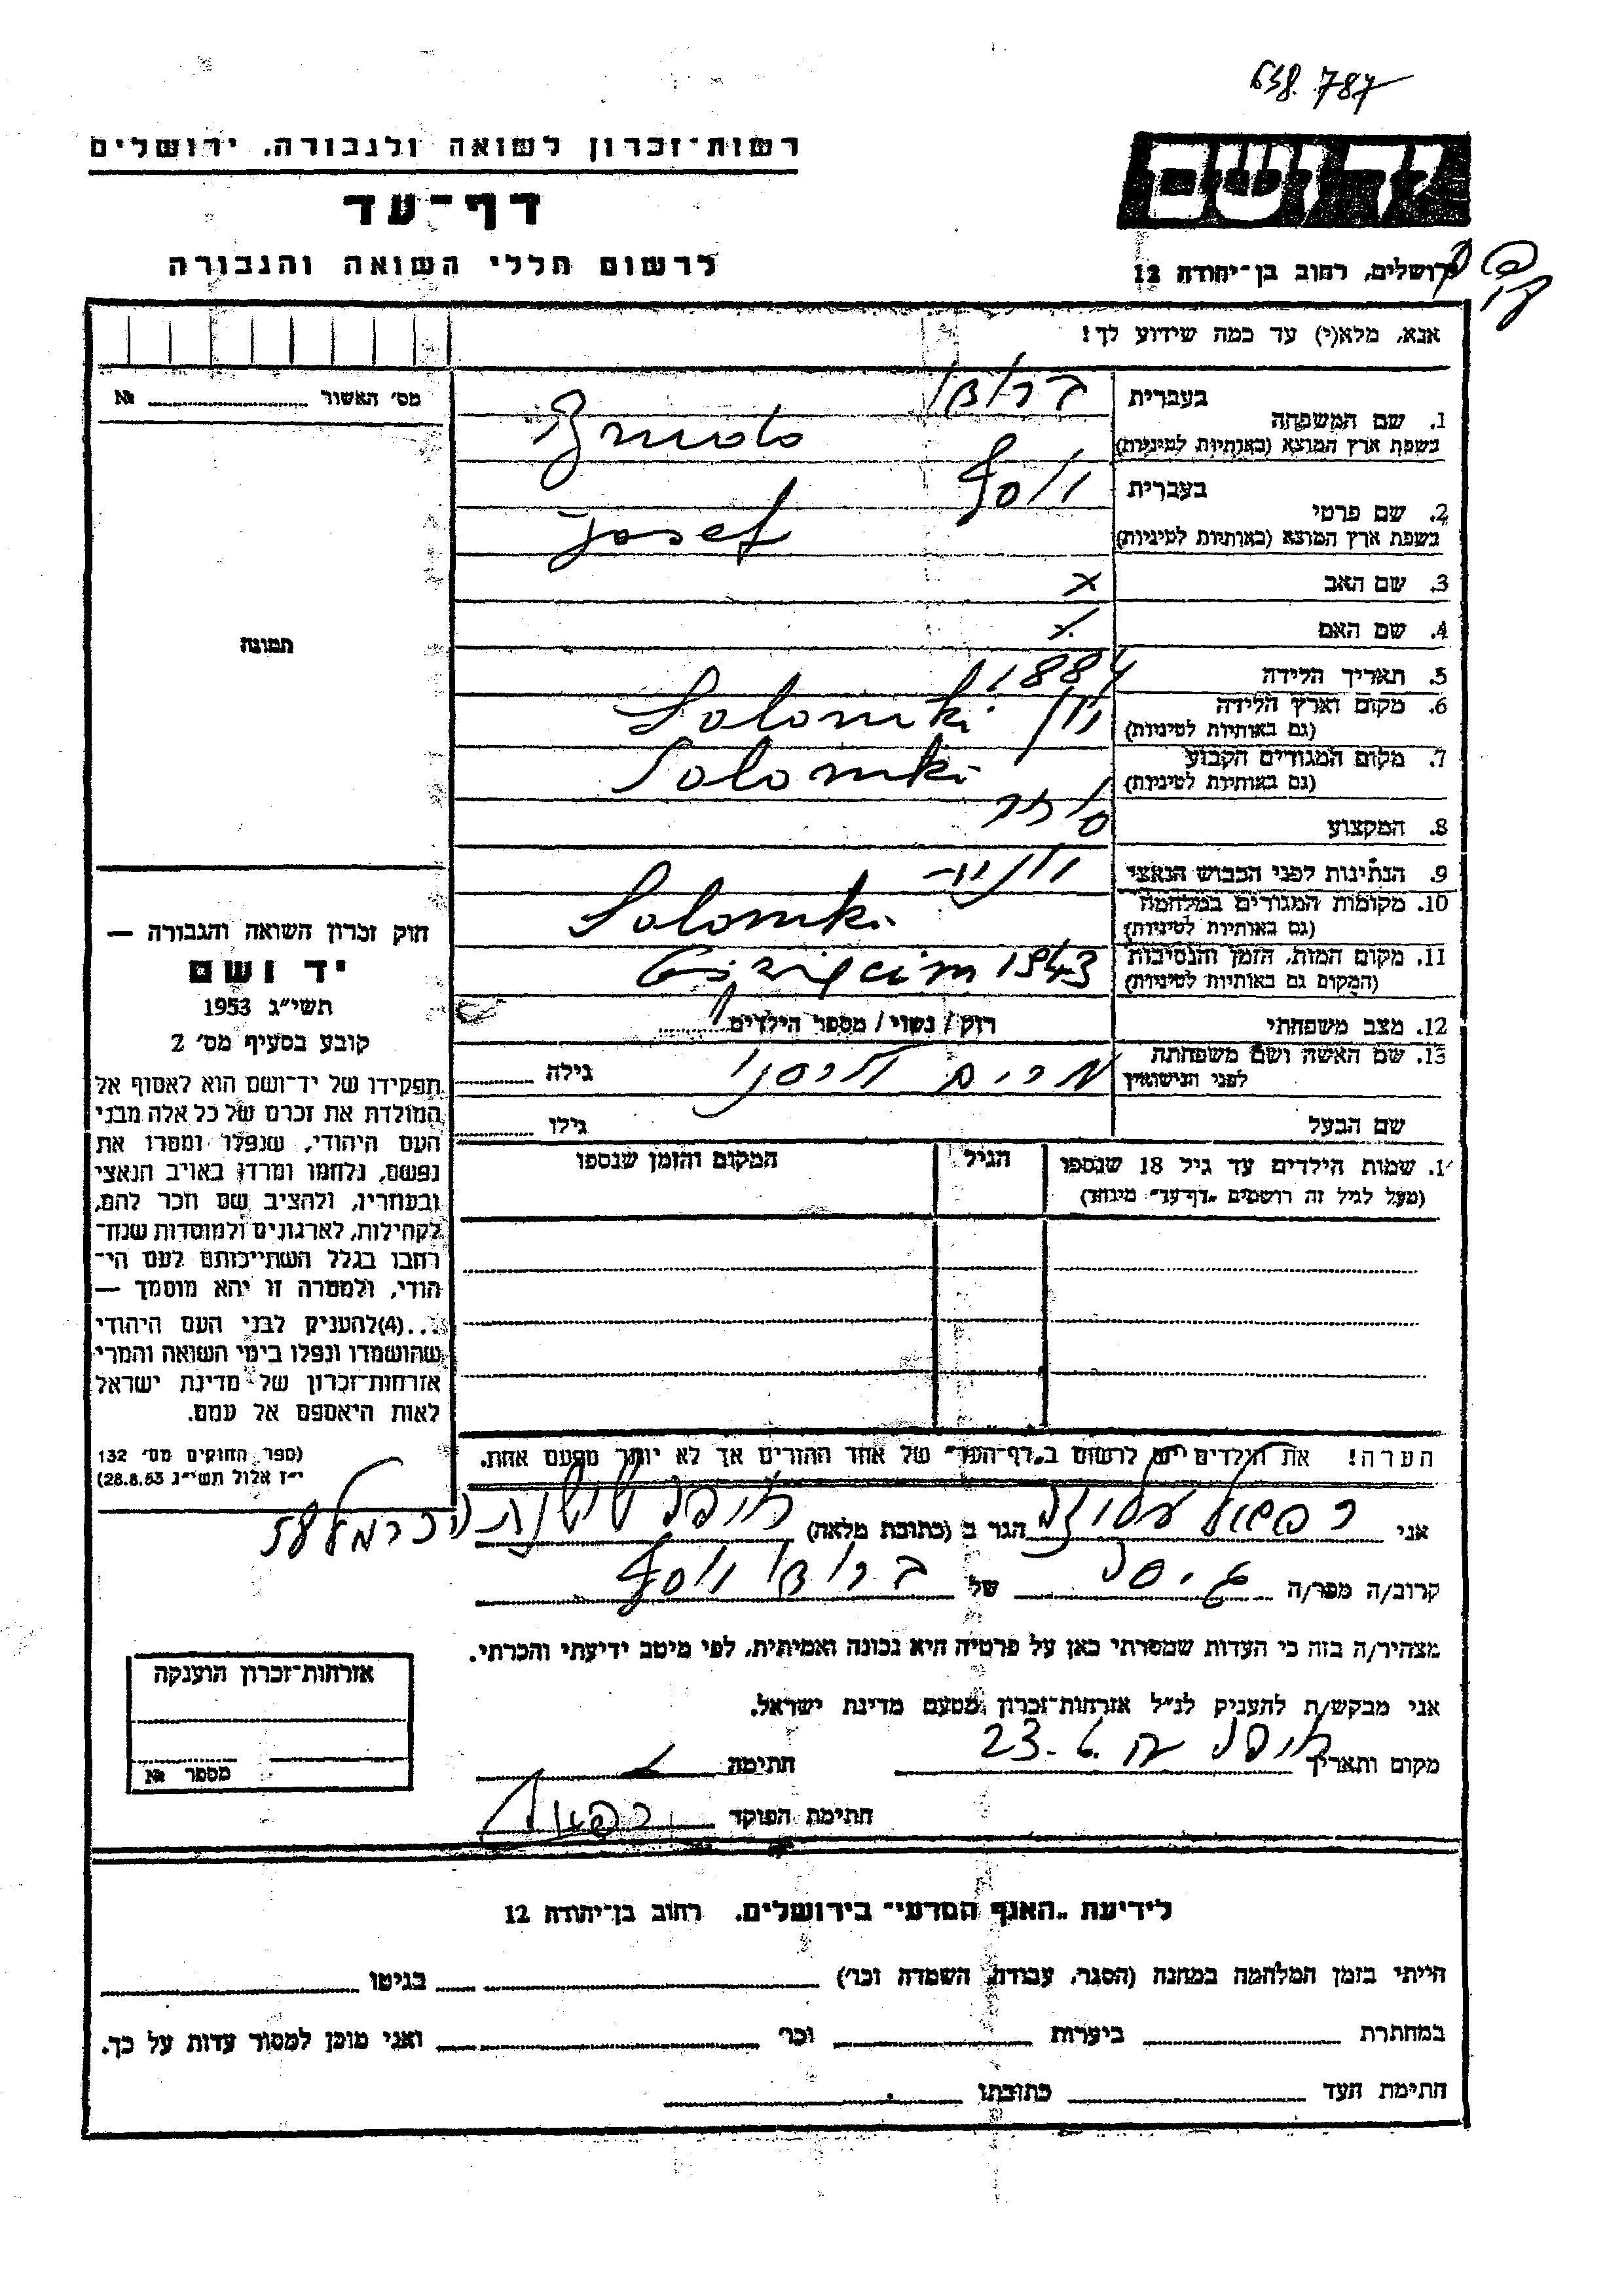 638.787
רשות־זכרון לשואה ולגבורה, ירושלים
דף־עד
לרשום חללי השואה והגבורה
יד ושם
ירושלים, רחוב בן־יהודה 12
אנא, מלא(י) עד כמה שידוע לך!
מס׳ האשור № 
1. שם המשפחה
בעברית
בשפת ארץ המוצא (באותיות לטיניות)
2. שם פרטי
בעברית יוסף
בשפת ארץ המוצא (באותיות לטיניות) Josef
3. שם האב x
4. שם האם x
5. תאריך הלידה 1884
6. מקום וארץ הלידה
(גם באותיות לטיניות) יוון Soloniki
7. מקום המגורים הקבוע
(גם באותיות לטיניות) Soloniki
8. המקצוע סוחר
9. הנתינות לפני הכבוש הנאצי
10. מקומות המגורים במלחמה
(גם באותיות לטיניות) Soloniki
11. מקום המות, הזמן והנסיבות
(המקום גם באותיות לטיניות) 1943
12. מצב משפחתי רווק / נשוי / מספר הילדים
13. שם האשה ושם משפחתה
לפני הנישואין מרים גילה
שם הבעל גילו
שמות הילדים עד גיל 18 שנספו
(מעל לגיל זה רושמים „דף־עד" מיוחד)
הגיל
המקום והזמן שנספו
תמונה
חוק זכרון השואה והגבורה —
יד ושם
תשי״ג 1953
קובע בסעיף מס׳ 2
תפקידו של יד־ושם הוא לאסוף אל
המולדת את זכרם של כל אלה מבני
העם היהודי, שנפלו ומסרו את
נפשם, נלחמו ומרדו באויב הנאצי
ובעוזריו, ולהציב שם וזכר להם,
לקהילות, לארגונים ולמוסדות שנח־
רבו בגלל השתייכותם לעם הי־
הודי, ולמטרה זו יהא מוסמך —
...(4)להעניק לבני העם היהודי
שהושמדו ונפלו בימי השואה והמרי
אזרחות־זכרון של מדינת ישראל
לאות היאספם אל עמם.
(ספר החוקים מס׳ 132
י״ז אלול תשי״ג 28.8.53)
הערה! את הילדים יש לרשום ב„דף־העד" של אחד ההורים אך לא יותר מפעם אחת.
אני הגר ב (כתובת מלאה) חיפה
קרוב/ה מכר/ה של יוסף
מצהיר/ה בזה כי העדות שמסרתי כאן על פרטיה היא נכונה ואמיתית, לפי מיטב ידיעתי והכרתי.
אני מבקש/ת להעניק לנ״ל אזרחות־זכרון מטעם מדינת ישראל.
מקום ותאריך חיפה 23.6 חתימה
חתימת הפוקד
אזרחות־זכרון הוענקה
מספר №
לידיעת „האגף המדעי" בירושלים, רחוב בן־יהודה 12
הייתי בזמן המלחמה במחנה (הסגר, עבודה, השמדה וכו׳) בגיטו
במחתרת ביערות וכו׳ ואני מוכן למסור עדות על כך.
חתימת העד כתובתו